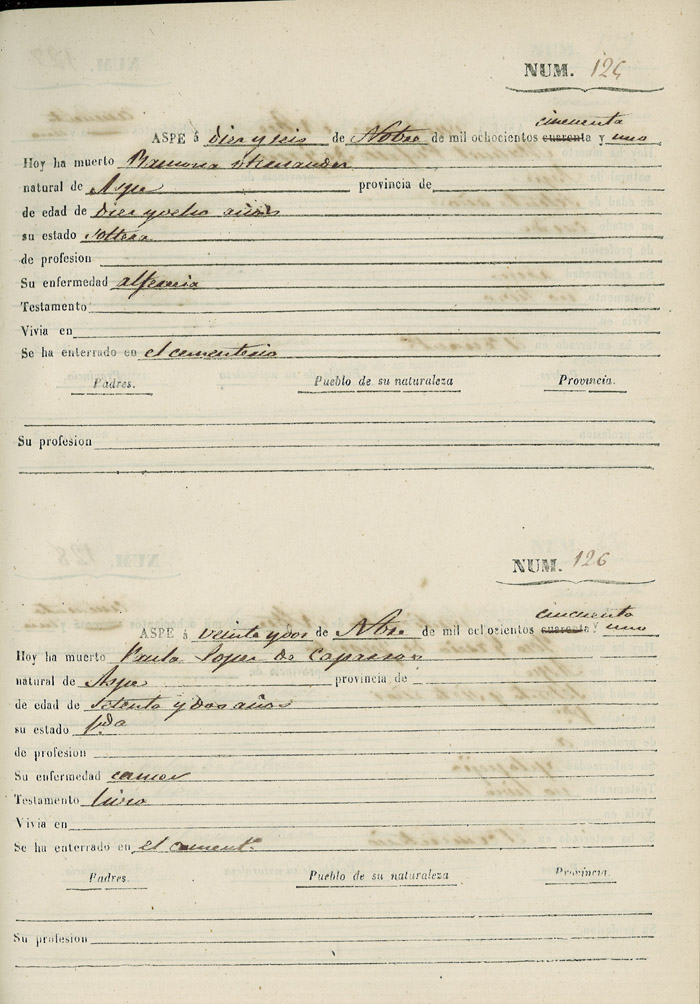 NUM. 125
cincuenta
ASPE á diez y seis de Nobre de mil ochocientos cuarenta y uno
Hoy ha muerto Ramona Hernandez
natural de Aspe provincia de
de edad de diez y ocho años
su estado soltera
de profesion
Su enfermedad alferecia
Testamento
Vivia en
Se ha enterrado en el cementerio
Padres. Pueblo de su naturaleza Provincia.
Su profesion
NUM. 126
cincuenta
ASPE á veinte y dos de Nbre de mil ochocientos cuarenta y uno
Hoy ha muerto Lopez de
natural de Aspe provincia de
de edad de setenta y dos años
su estado Vda
de profesion
Su enfermedad cancer
Testamento
Vivia en
Se ha enterrado en el cementº
Padres. Pueblo de su naturaleza Provincia.
Su profesion